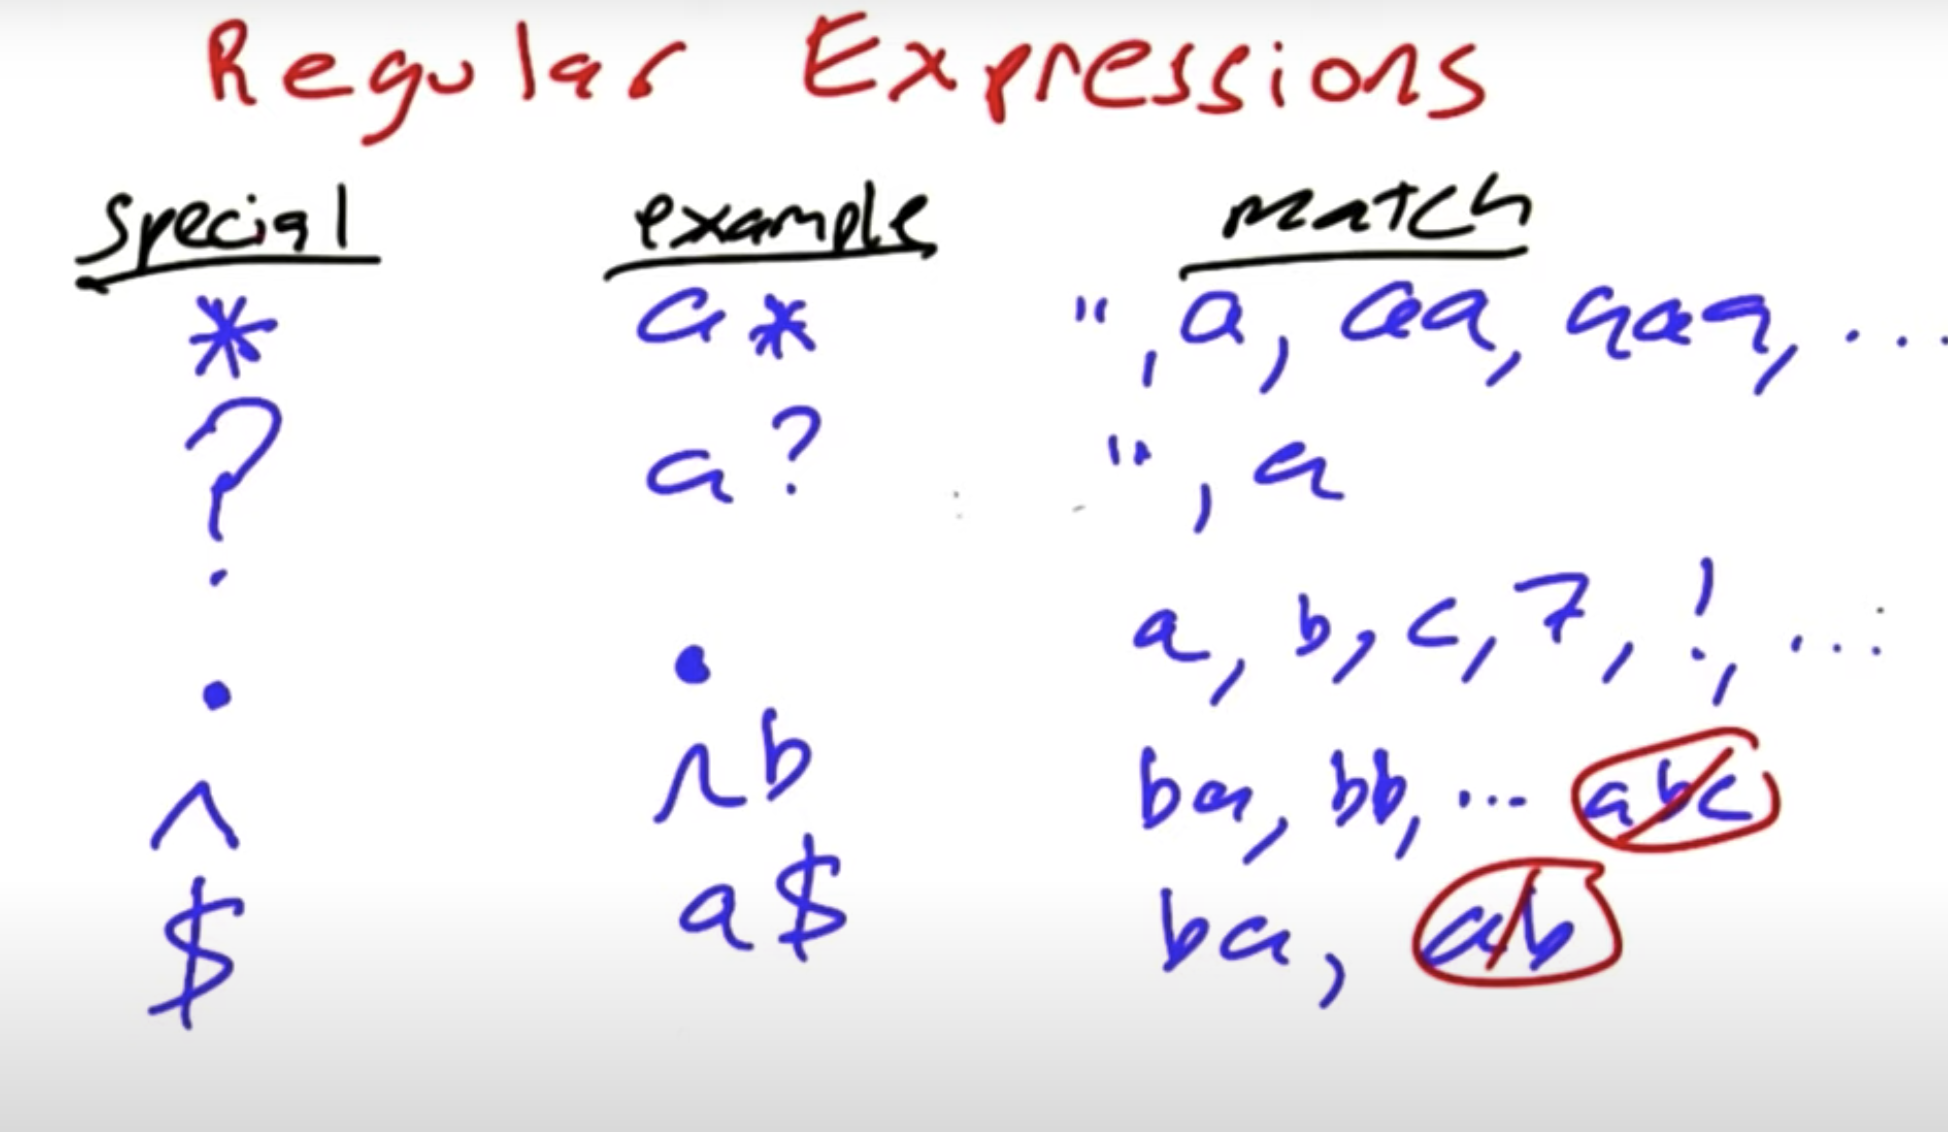 Regular Expressions
special example match
* a* ", a, aa, aaa, ...
? a? ", a
. . a, b, c, 7, !, ...
^ ^b ba, bb, ... abc
$ a$ ba, ab